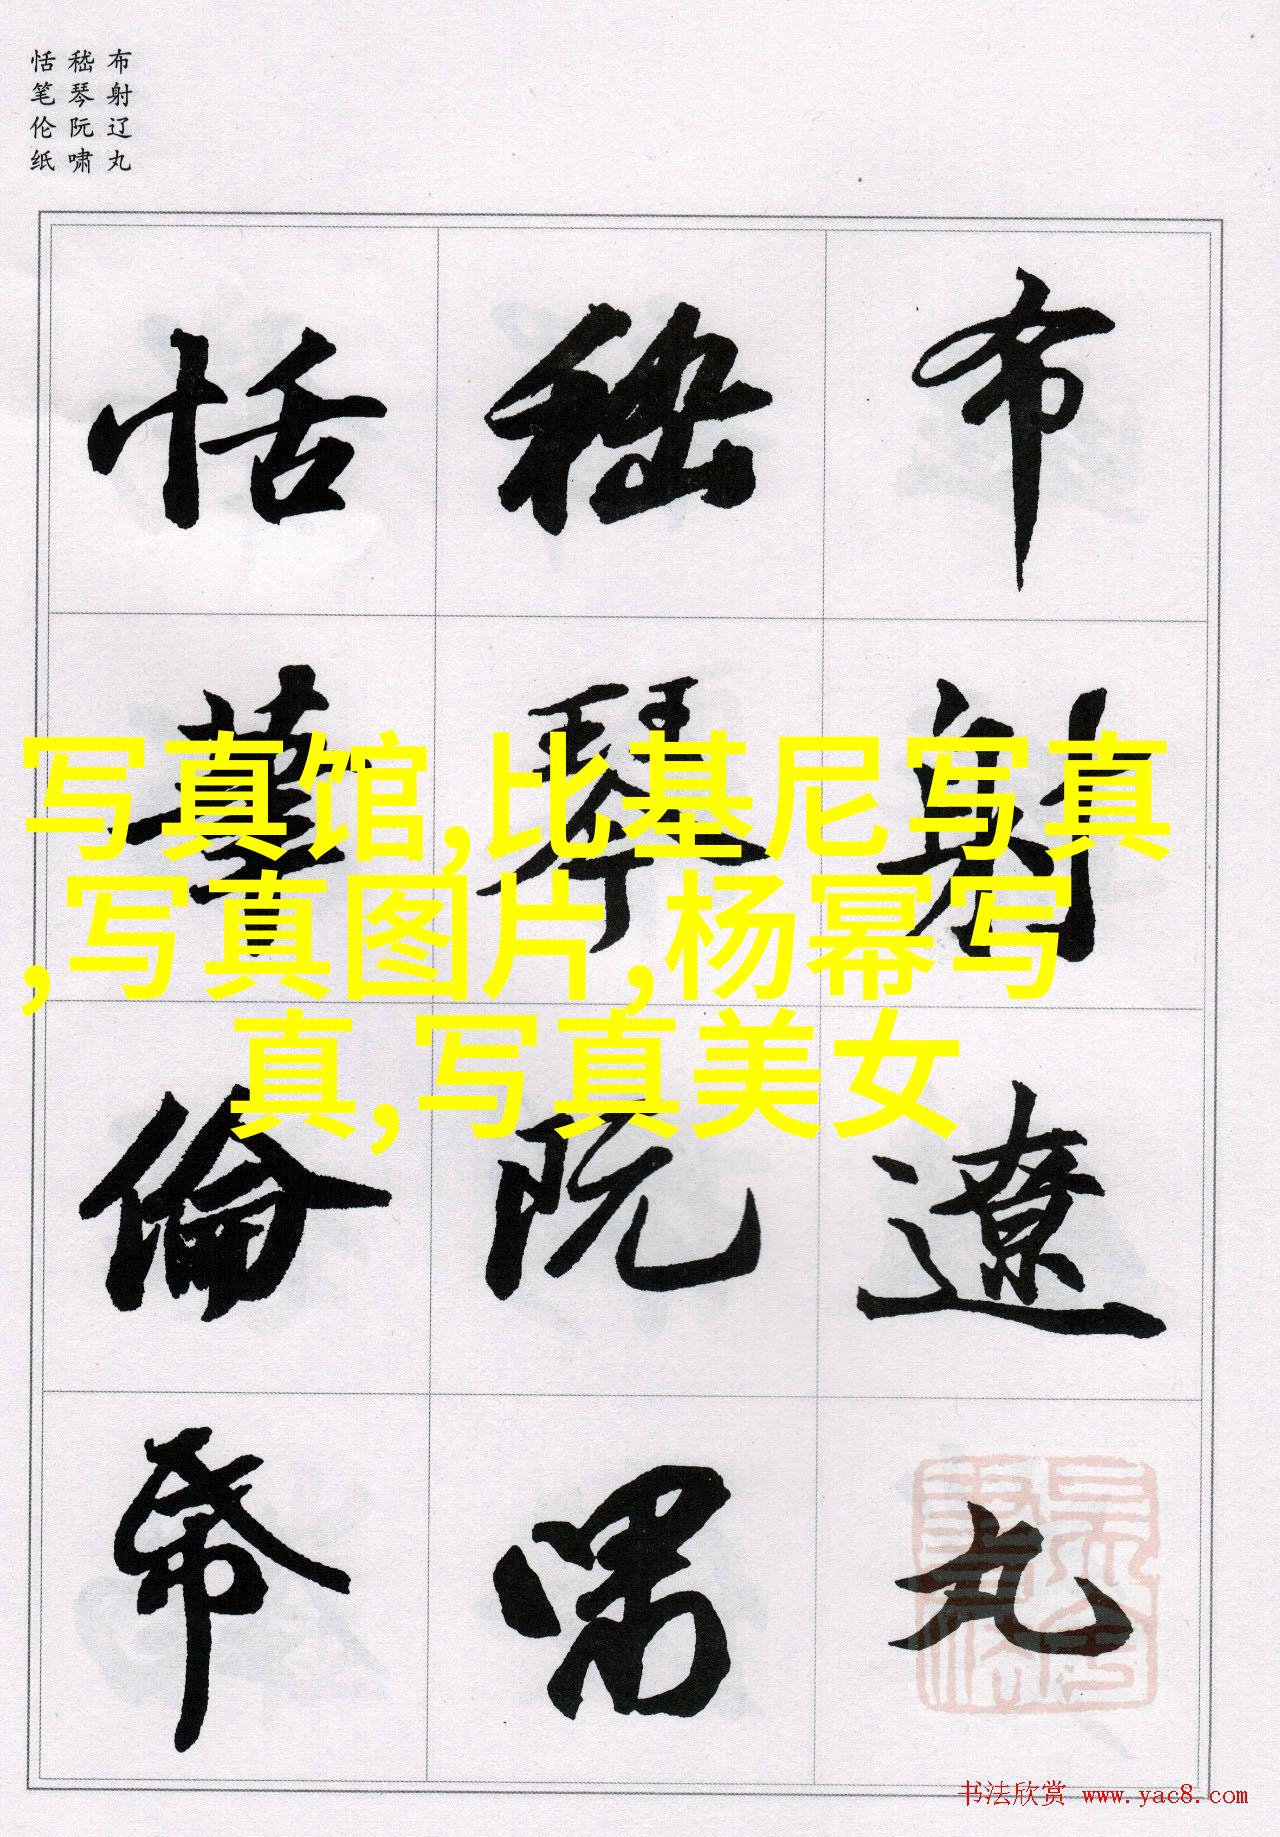 布射辽丸
嵇琴阮啸
恬笔伦纸
布射遼丸
嵇琴阮嘯
恬筆倫帋
写真馆,比基尼写真
,写真图片,杨幂写
真,写真美女
书法欣赏 www.yac8.com